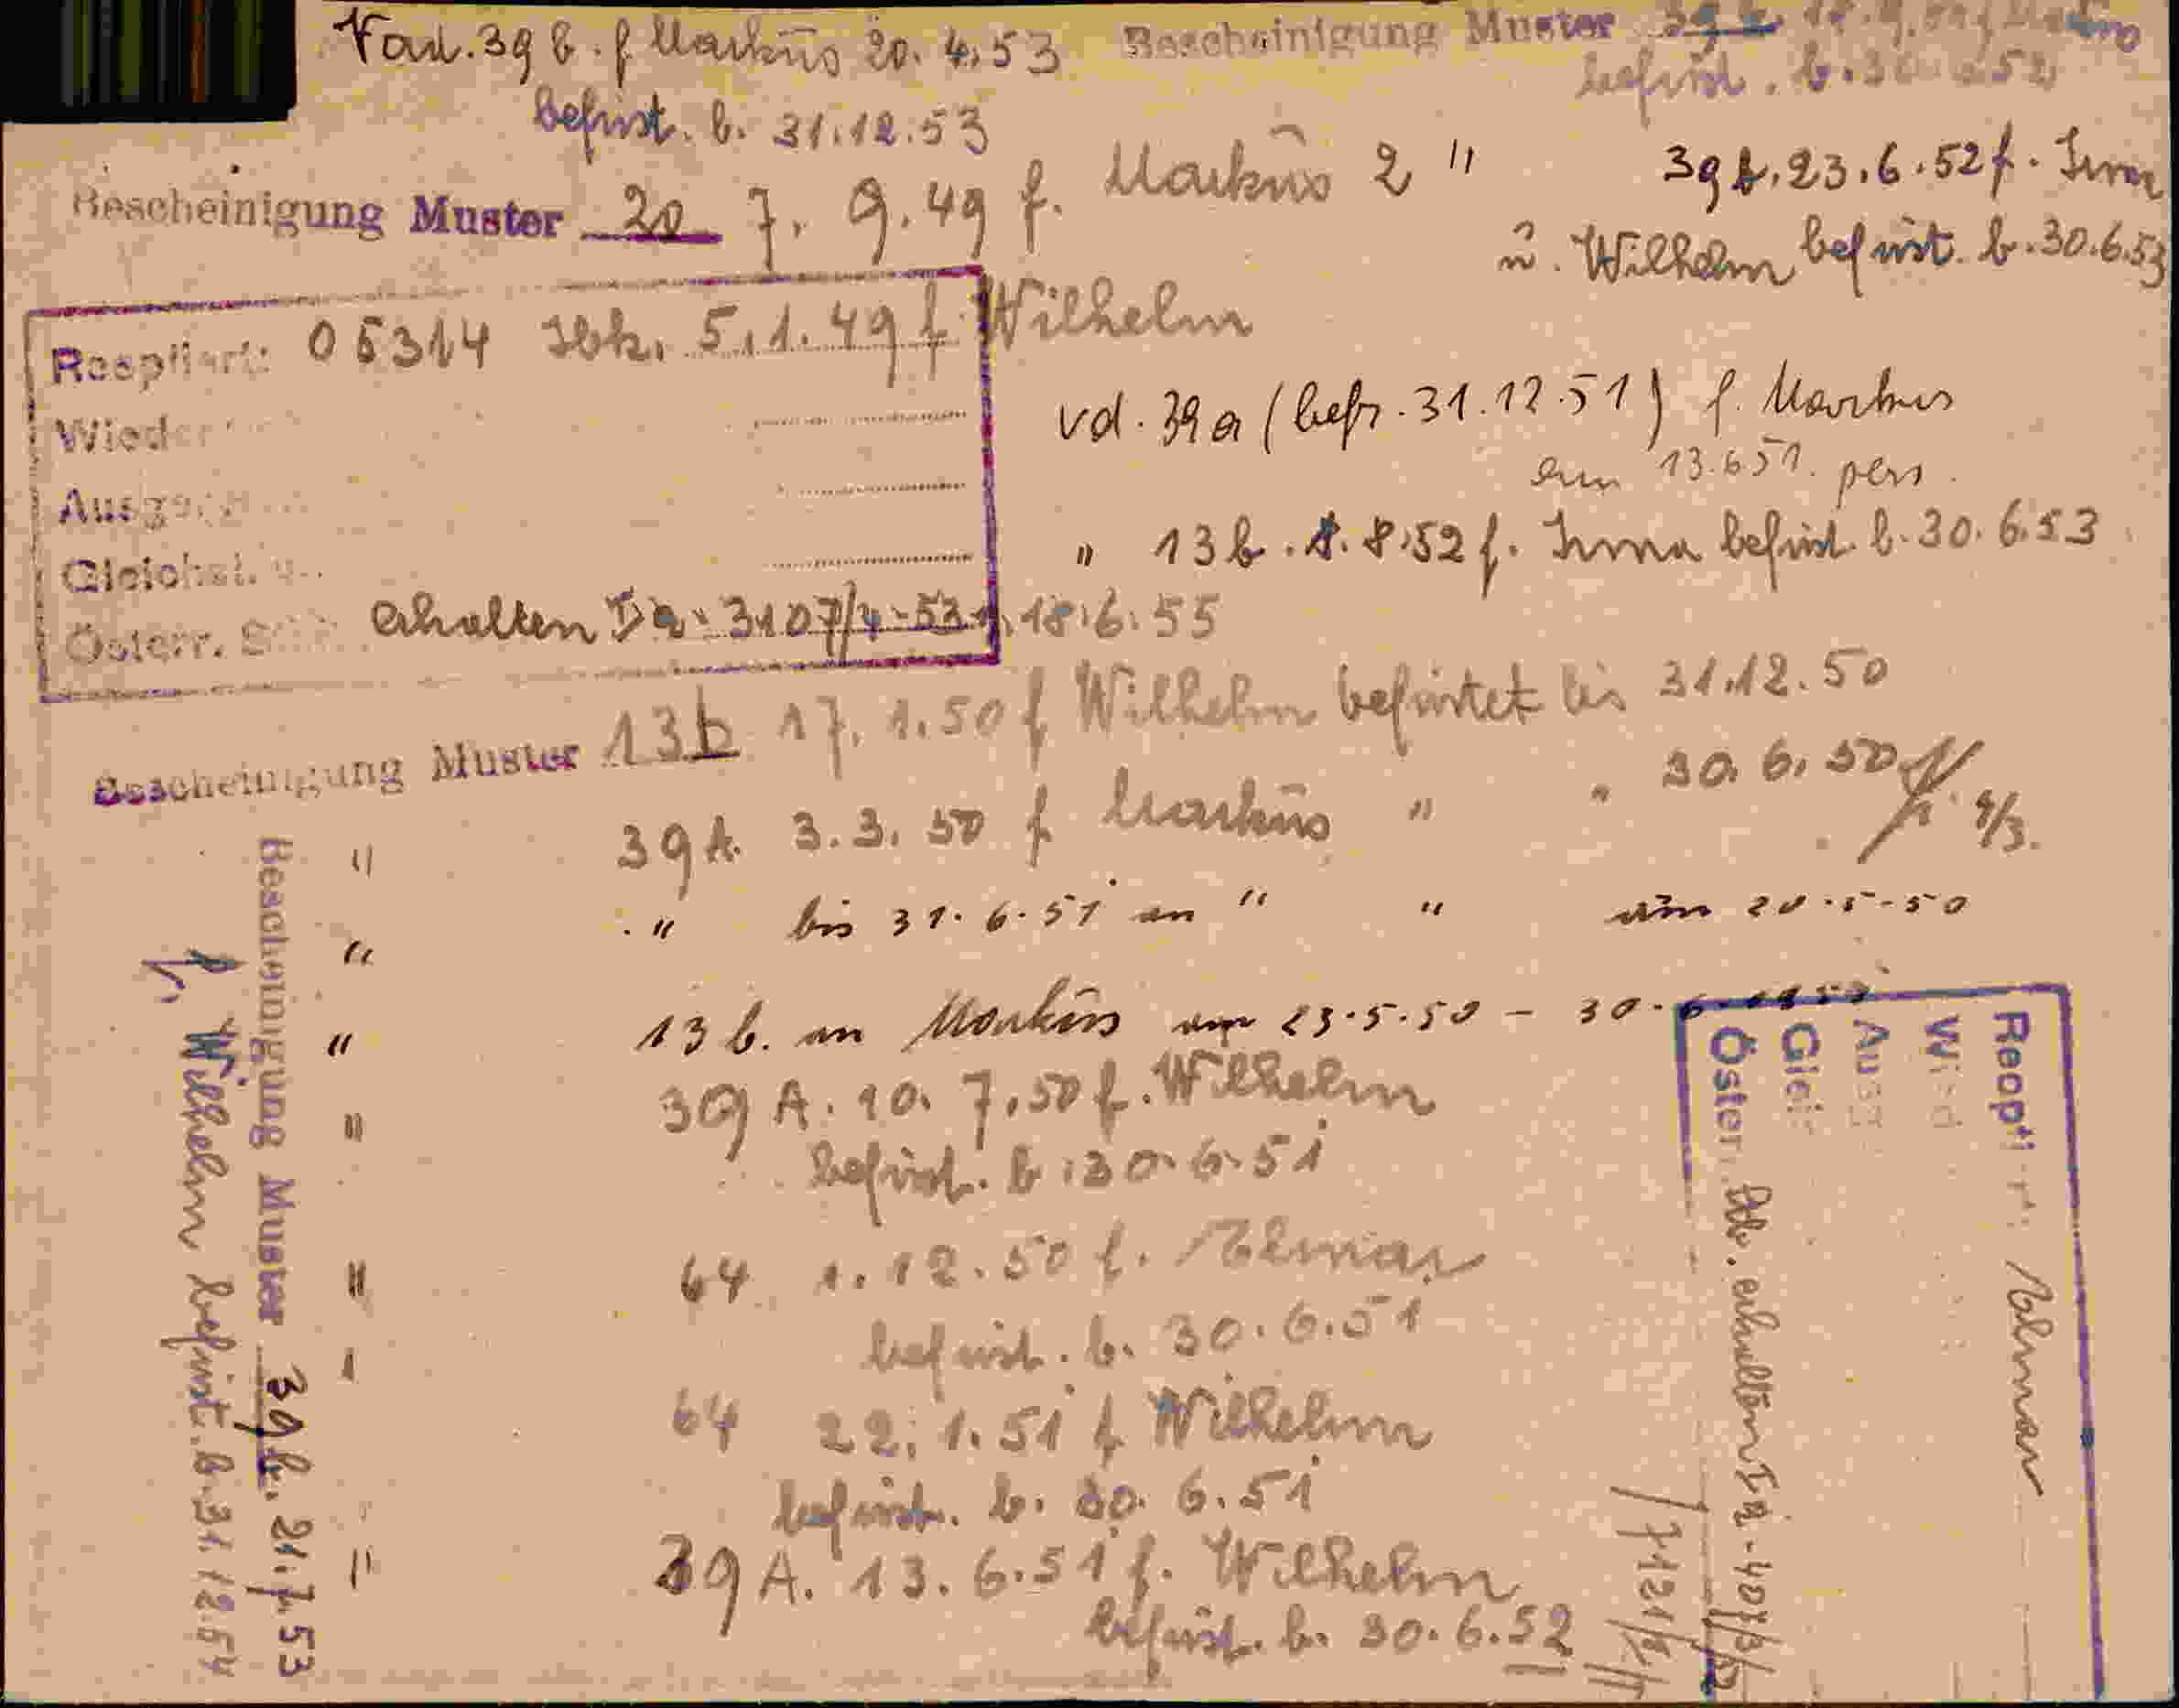 Vorl. 39 b. f. Markus 20. 4. 53
befrist. b. 31.12.53
Bescheinigung Muster 39 b
befrist. b. 52
Bescheinigung Muster 20 7. 9. 49 f. Markus 2
" 39 b. 23.6.52 f. Irma
u. Wilhelm befrist. b. 30.6.53
Reoptiert: 05314 Ibk. 5.1.49 f. Wilhelm
Wieder
Ausge
Gleichst.
Österr. erhalten Ia- 3107/4-53 18.6.55
vd. 39a (befr. 31.12.51) f. Markus
am 13.6 51. pers.
" 13 b. 8. 8.52 f. Irma befrist. b. 30. 6.53
Bescheinigung Muster 13b 17. 1.50 f Wilhelm befristet bis 31.12.50
" 39 A. 3.3. 50 f Markus " " 30. 6. 50
9/3.
" " bis 31.6.51 an " " am 20.5.50
" 13 b. an Markus am 23.5.50 - 30.6.
" 39 A. 10. 7.50 f. Wilhelm
befrist. b. 30.6.51
" 64 1.12.50 f. Elmar
befrist. b. 30.6.51
" 64 22. 1.51 f Wilhelm
befrist. b. 30. 6.51
" 39 A. 13. 6.51 f. Wilhelm
befrist. b. 30.6.52
Bescheinigung Muster 39 b. 21.7.53
f. Wilhelm befrist. b. 31.12.54
Reopt Elmar
Wied
Ausg
Glei
Österr. erhalten Ia-